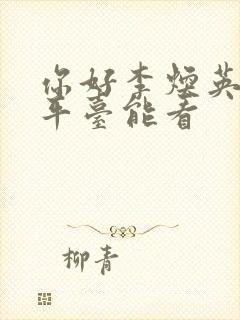 你好李煙英
平臺能看
柳青